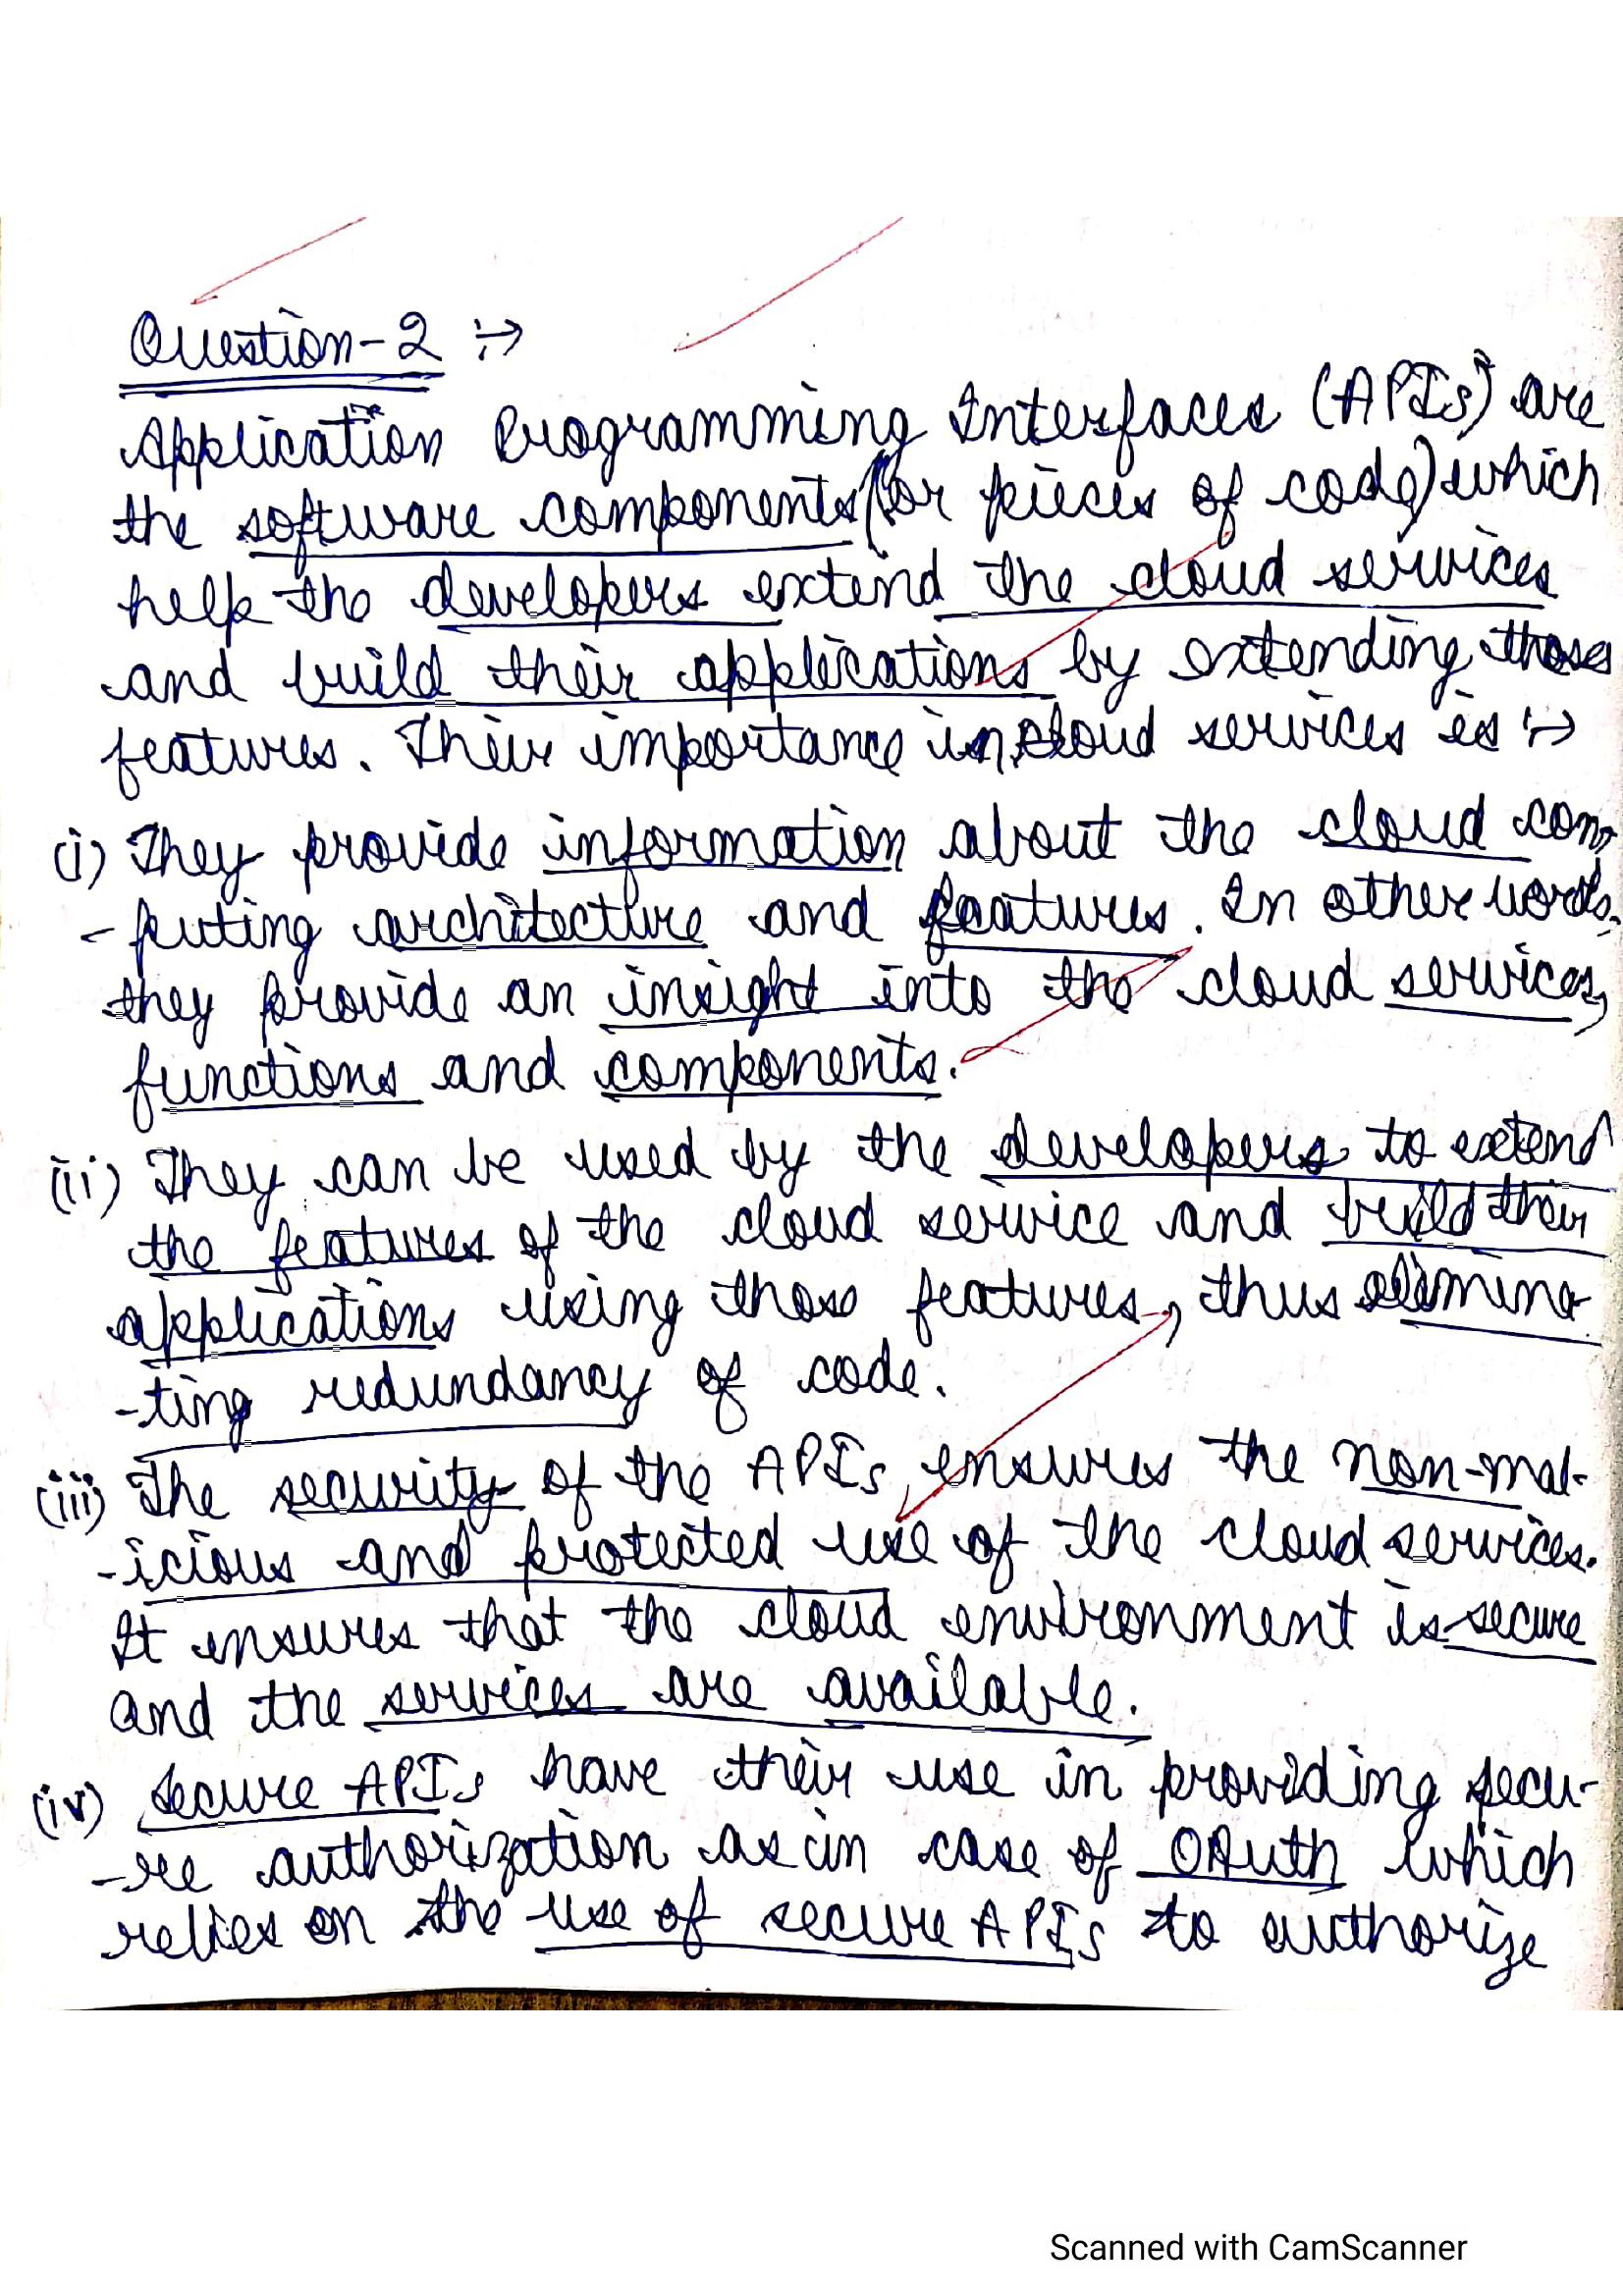 Question-2 :→
Application Programming Interfaces (APIs) are
the software components (or pieces of code) which
help the developers extend the cloud services
and build their applications by extending those
features. Their importance in cloud services is :→
(i) They provide information about the cloud com-
-puting architecture and features. In other words,
they provide an insight into the cloud services,
functions and components.
(ii) They can be used by the developers to extend
the features of the cloud service and build their
applications using those features, thus elimina-
-ting redundancy of code.
(iii) The security of the APIs ensures the non-mal-
-icious and protected use of the cloud services.
It ensures that the cloud environment is secure
and the services are available.
(iv) Secure APIs have their use in providing secu-
-re authorization as in case of OAuth which
relies on the use of secure APIs to authorize
Scanned with CamScanner